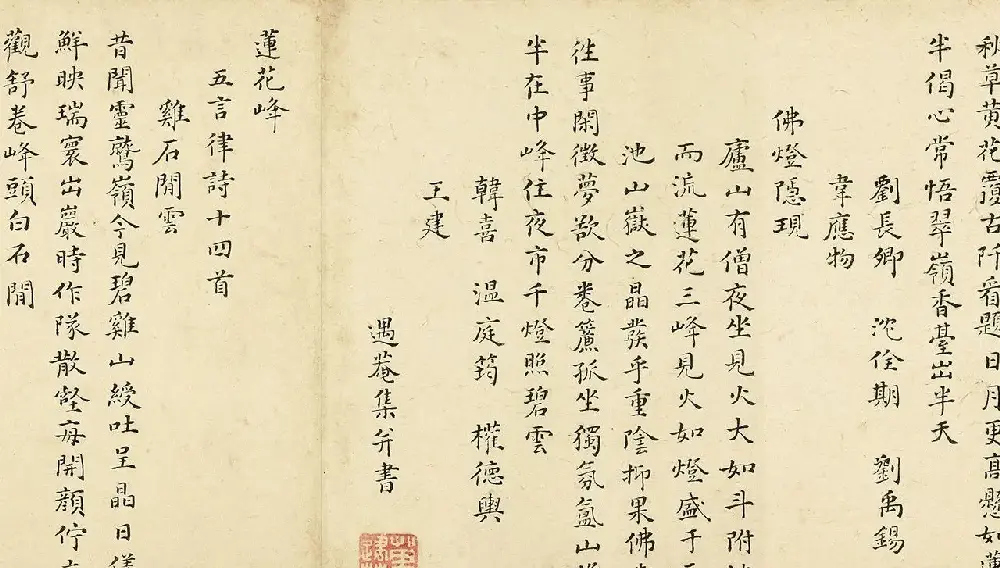 秋草黄花覆古阡看題日月更高懸如蓮
半偈心常悟翠嶺香臺出半天
劉長卿 沈佺期 劉禹錫
韋應物
佛燈隱現
廬山有僧夜坐見火大如斗附
而流蓮花三峰見火如燈盛于
池山嶽之晶發乎重陰抑果佛
往事閑徵夢欲分卷簾孤坐獨氛氳山
半在中峰住夜市千燈照碧雲
韓喜 温庭筠 權德輿
王建
遇菴集并書
蓮花峰
五言律詩十四首
雞石閒雲
昔聞靈鷲嶺今見碧雞山綬吐呈晶日
鮮映瑞寰出巖時作隊散壑每開顏佇
觀舒卷峰頭白石閒